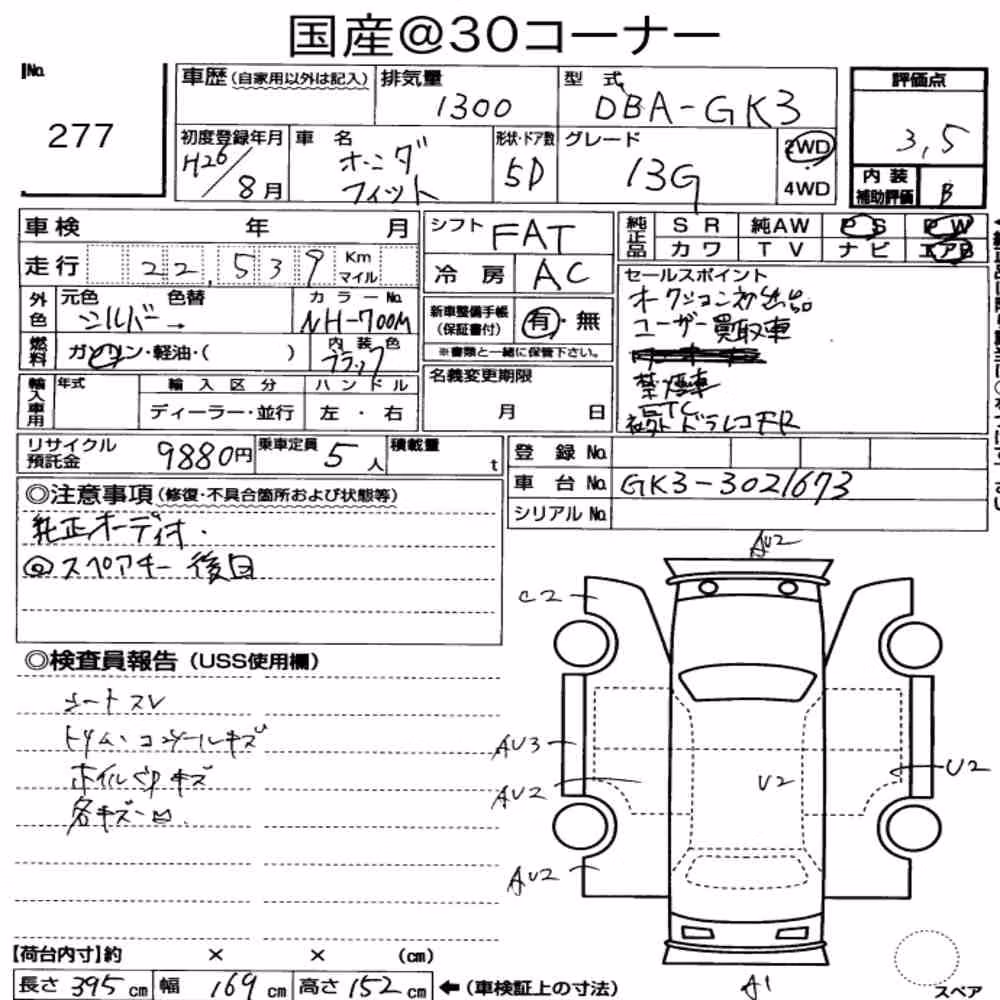 国産@30コーナー
No. 277
車歴(自家用以外は記入) 排気量 1300 型式 DBA-GK3
評価点 3,5
初度登録年月 H26/8月 車名 ホンダ フィット 形状・ドア数 5D グレード 13G 2WD 4WD
内装補助評価 B
車検 年 月
走行 22,539 Km マイル
外色 元色 シルバー → 色替 カラーNo. NH-700M
燃料 ガソリン・軽油・( ) 内装色 ブラック
輸入車用 年式 輸入区分 ディーラー・並行 ハンドル 左・右
シフト FAT
冷房 AC
新車整備手帳(保証書付) 有・無
※書類と一緒に保管下さい。
名義変更期限 月 日
純正品 SR 純AW PS PW
カワ TV ナビ エアB
セールスポイント
オークション初出品
ユーザー買取車
禁煙車
ETC
ドラレコFR
リサイクル預託金 9880円 乗車定員 5人 積載量 t
登録No.
車台No. GK3-3021673
シリアルNo.
◎注意事項(修復・不具合箇所および状態等)
純正オーディオ.
◎スペアキー 後日
◎検査員報告(USS使用欄)
シートスレ
トリム・コンソールキズ
ホイルCPキズ
各キズ凹
AU2
C2
AU3
AU2
U2
U2
AU2
A1
スペア
【荷台内寸】約 × × (cm)
長さ 395 cm 幅 169 cm 高さ 152 cm ←(車検証上の寸法)